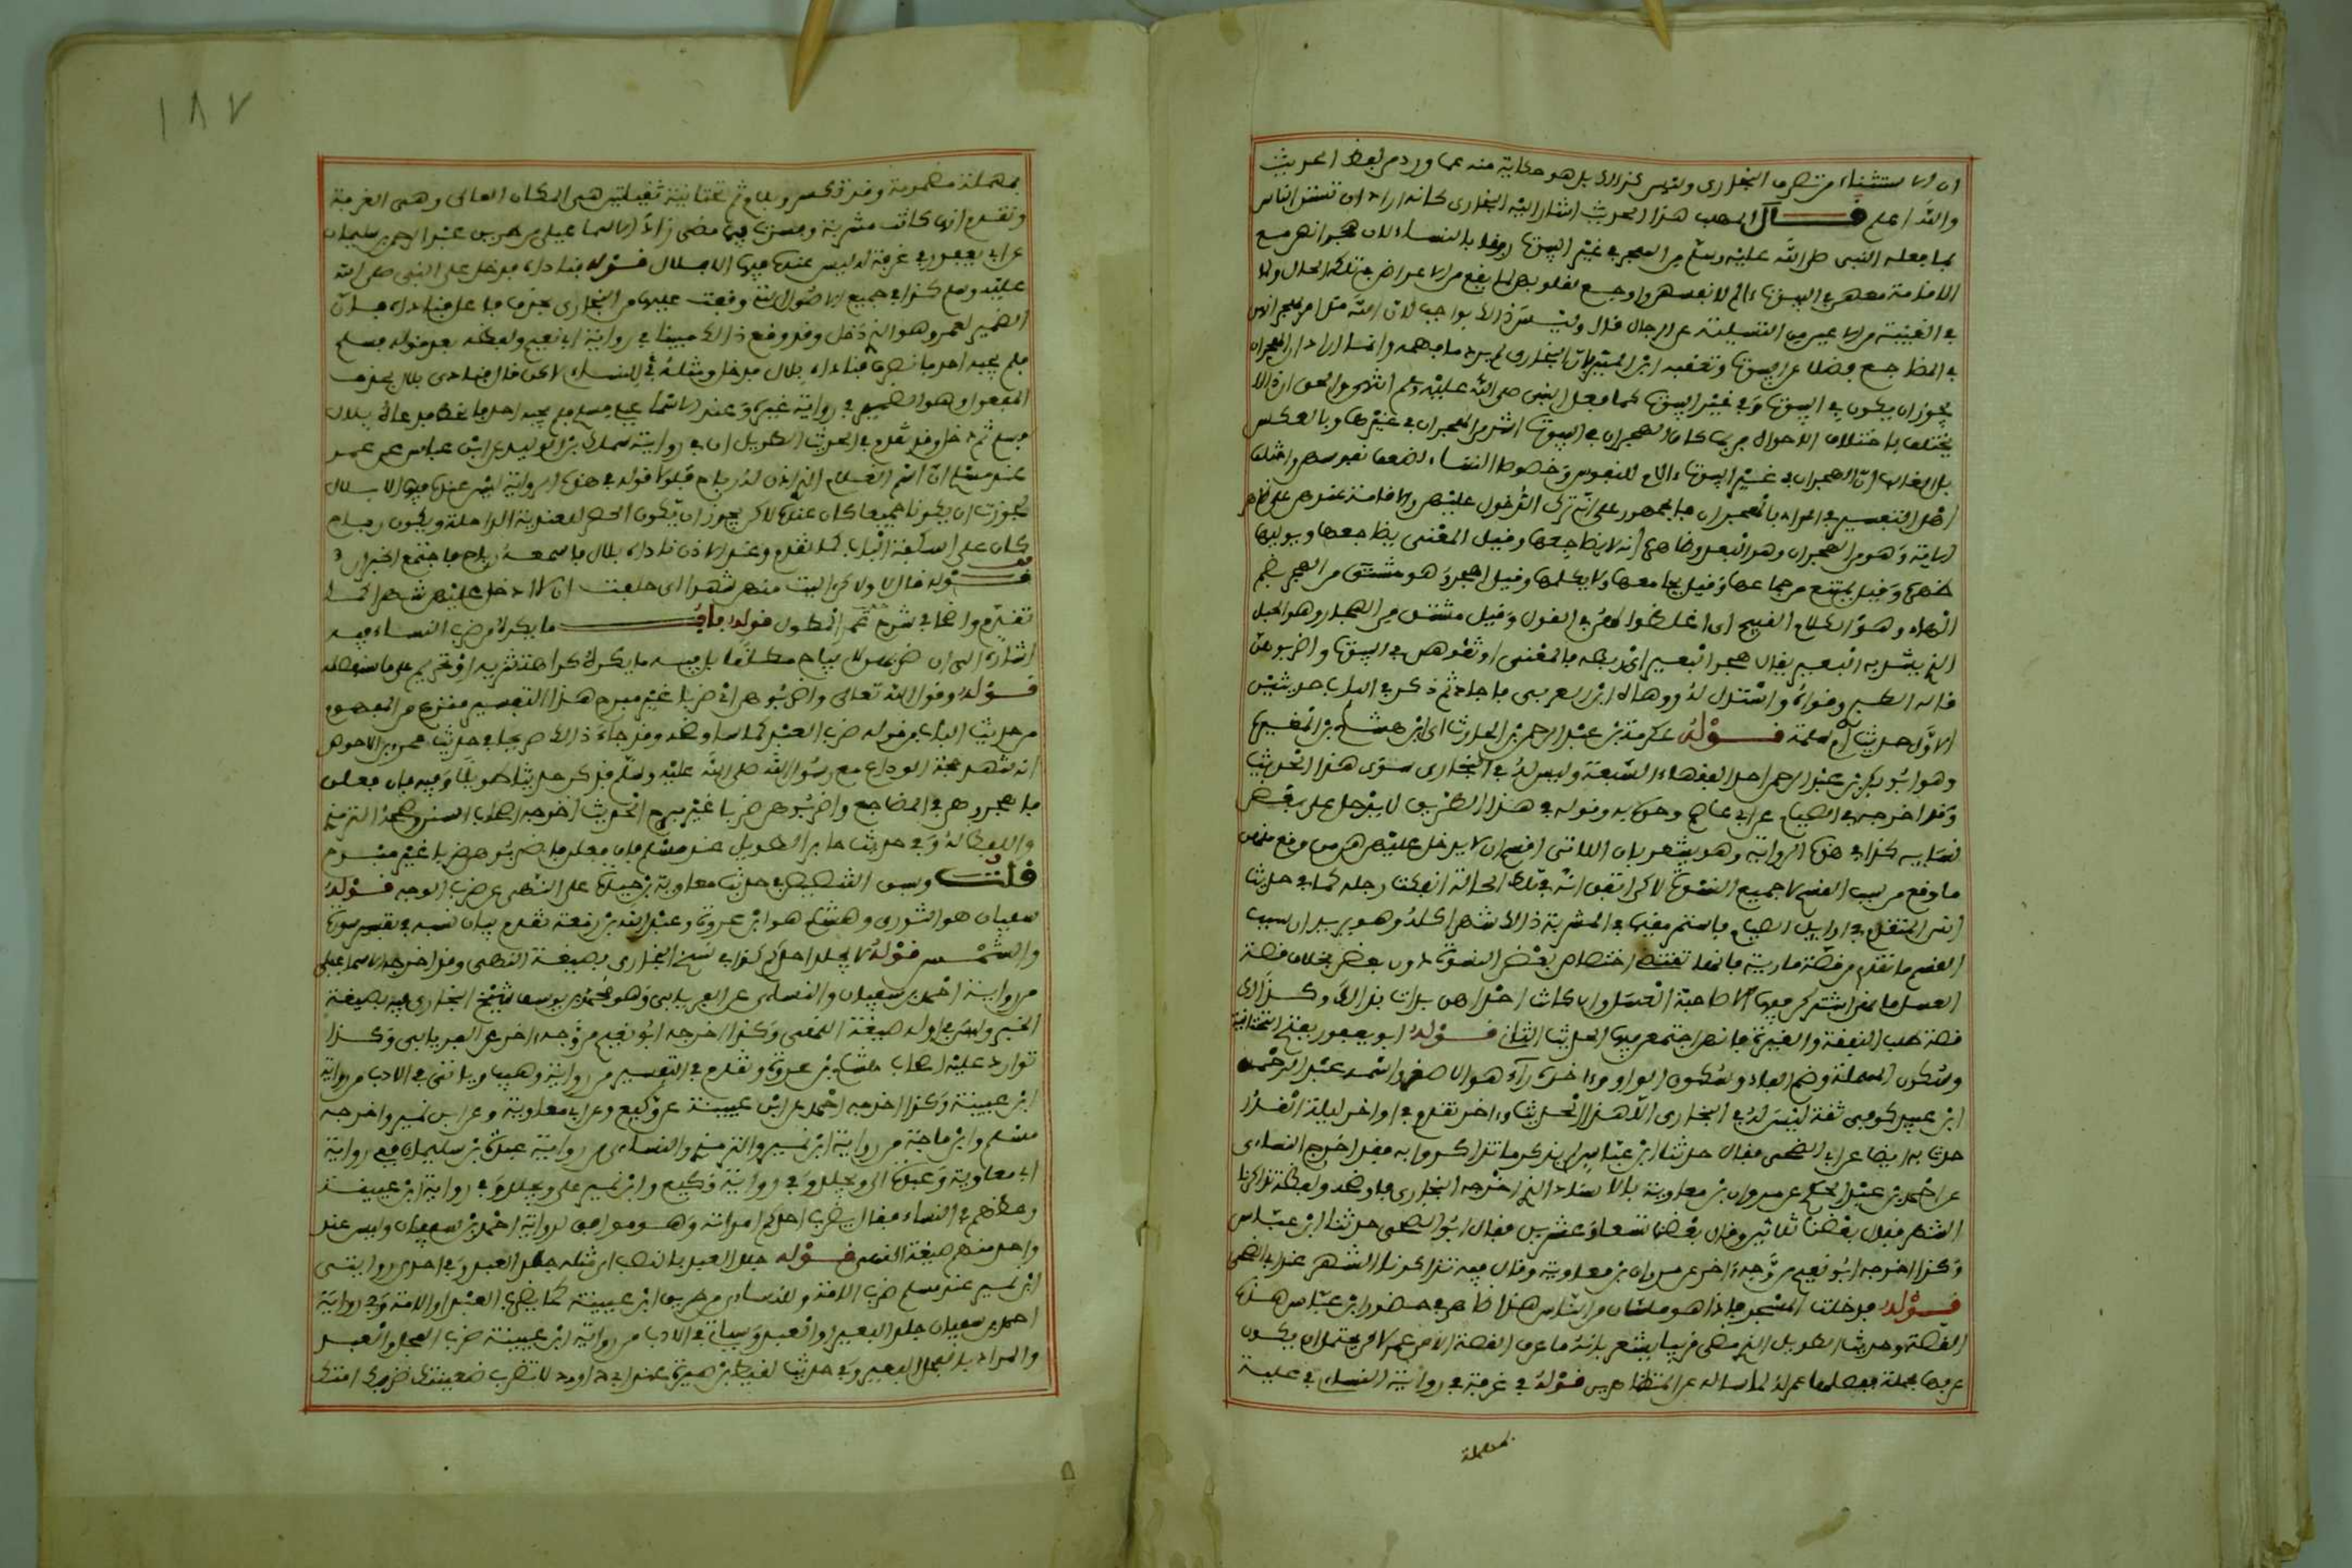 ان الاستثناء من تصرف البخاري وليس كذلك بل هو حكاية منه عما ورد من لفظ الحديث
والله اعلم قال المهلب هذا الحديث اشار اليه البخاري كانه اراد ان تستن الناس
بما فعله النبي صلى الله عليه وسلم من الهجر في غير البيوت رفقا بالنساء لان هجرانهن مع
الاقامة معهن في البيوت ءالم لانفسهن واوجع لقلوبهن لما يقع من الاعراض في تلك الحال ولما
في الغيبة من الاعين من التسلية عن الرجال قال وليس ذلك بواجب لان الله قد امر بهجرانهن
في المضاجع فضلا عن البيوت وتعقبه ابن المنير بان البخاري لم يرد ما فهمه وانما اراد ان الهجران
يجوز ان يكون في البيوت وفي غير البيوت كما فعل النبي صلى الله عليه وسلم انتهى والحق ان ذلك
يختلف باختلاف الاحوال فربما كان الهجران في البيوت اشد من الهجران في غيرها وبالعكس
بل الغالب ان الهجران في غير البيوت ءالم للنفوس وخصوصا النساء لضعف نفوسهن واختلف
اهل التفسير في المراد بالهجران فالجمهور على انه ترك الدخول عليهن والاقامة عندهن على ظاهر
الاية وهو من الهجران وهو البعد وظاهره انه لا يضاجعها وقيل المعنى يضاجعها ويوليها
ظهره وقيل يمتنع من جماعها وقيل يجامعها ولا يكلمها وقيل اهجروهن مشتق من الهجر بضم
الهاء وهو الكلام القبيح اي اغلظوا لهن في القول وقيل مشتق من الهجار وهو الحبل
الذي يشد به البعير يقال هجر البعير اي ربطه فالمعنى اوثقوهن في البيوت واضربوهن
قاله الطبري وقواه واستدل له ووهاه ابن العربي فاجاد ثم ذكر في الباب حديثين
الاول حديث ام سلمة قوله عكرمة بن عبد الرحمن بن الحارث اي ابن هشام بن المغيرة
وهو اخو ابي بكر بن عبد الرحمن احد الفقهاء السبعة وليس له في البخاري سوى هذا الحديث
وقد اخرجه في الصيام عن ابي عاصم وحده به وقوله في هذا الطريق لا يدخل على بعض
نسايه كذا في هذه الرواية وهو يشعر بان اللاتي اقسم ان لا يدخل عليهن هن من وقع منهن
ما وقع من سبب القسم لا جميع النسوة لاكن اتفق انه في تلك الحالة انفكت رجله كما في حديث
انس المتقدم في اوايل الصيام فاستمر مقيما في المشربة ذلك الشهر كله وهو يريد ان سبب
القسم ما تقدم من قصة مارية فانها تقتضي اختصاص بعض النسوة دون بعض بخلاف قصة
العسل فانهن اشتركن فيها الا صاحبة العسل وان كانت احداهن بدات بذلك وكذلك
قصة طلب النفقة والغيرة فانهن اجتمعن فيها الحديث الثاني قوله ابو يعفور بفتح التحتانية
وسكون المهملة وضم الفاء وسكون الواو وءاخره راء هو الاصغر واسمه عبد الرحمن
ابن عبيد كوفي ثقة ليس له في البخاري الا هذا الحديث وءاخر تقدم في اواخر ليلة القدر
حدث به ايضا عن ابي الضحى فقال حدثنا ابن عباس لم يذكر ما تذاكروا به فقد اخرج النساءى
عن احمد بن عبد الحكم عن مروان بن معاوية بالاسناد الذي اخرجه البخاري فاوضحه ولفظه تذاكرنا
الشهر فقال بعضنا ثلاثين وقال بعضنا تسعا وعشرين فقال ابو الضحى حدثنا ابن عباس
وكذا اخرجه ابو نعيم من وجه ءاخر عن مروان بن معاوية وقال فيه تذاكرنا الشهر عند ابي الضحى
قوله فدخلت المسجد فاذا هو ملئان من الناس هذا ظاهر في حضور ابن عباس هذه
القصة وحديث الطويل الذي مضى قريبا يشعر بانه ما عرف القصة الا من عمر لاكن يحتمل ان يكون
عرفها مجملة ففصلها عمر له لما ساله عن المتظاهرين قوله في غرفة في رواية النساءى في علية
بمهملة
١٨٧
بمهملة مضمومة وقد تكسر وبلام ثم تحتانية ثقيلة هي المكان العالي وهي الغرفة
وتقدم انه كانت مشربة وفسرت فيما مضى زاد الاسماعيلي من طريق عبد الرحيم بن سليمان
عن ابي يعفور في غرفة له ليس عنده فيها الا بلال قوله فناداه فدخل على النبي صلى الله
عليه وسلم كذا في جميع الاصول التي وقفت عليها من البخاري بحذف فاعل فناداه فان
الضمير لعمر وهو الذي دخل وقد وقع ذلك مبينا في رواية ابي نعيم ولفظه بعد قوله فسلم
فلم يجبه احد فانصرف فناداه بلال فدخل ومثله في النساءى لاكن قال فنادى بلال بحذف
المفعول وهو الضمير في رواية غيره وعند الاسماعيلي فسلم فلم يجبه احد فانحط فدعاه بلال
فسلم ثم دخل وقد تقدم في الحديث الطويل ان في رواية سماك بن الوليد عن ابن عباس عن عمر
عند مسلم ان اسم الغلام الذي اذن له رباح فلولا قوله في هذه الرواية ليس عنده فيها الا بلال
لجوزت ان يكونا جميعا كان عنده لاكن يجوز ان يكون الحصر للعندية الداخلة ويكون رباح
كان على اسكفة الباب كما تقدم وعند الاذن ناداه بلال فاسمعه رباح فاجتمع الخبران
قوله فقال لا ولاكن اليت منهن شهرا اي حلفت ان لا ادخل عليهن شهرا كما
تقدم واضحا في شرح حديث عمر المطول قوله باب ما يكره من ضرب النساء فيه
اشارة الى ان ضربهن لا يباح مطلقا بل فيه ما يكره كراهة تنزيه او تحريم على ما سنفصله
قوله وقول الله تعالى واضربوهن اي ضربا غير مبرح هذا التفسير منتزع من المفهوم
من حديث الباب من قوله ضرب العبد كما ساوضحه وقد جاء ذلك صريحا في حديث عمرو بن الاحوص
انه شهد حجة الوداع مع رسول الله صلى الله عليه وسلم فذكر حديثا طويلا وفيه فان فعلن
فاهجروهن في المضاجع واضربوهن ضربا غير مبرح الحديث اخرجه اصحاب السنن وصححه الترمذي
واللفظ له وفي حديث جابر الطويل عند مسلم فان فعلن فاضربوهن ضربا غير مبرح
قلت وسبق التنصيص في حديث معاوية بن حيدة على النهي عن ضرب الوجه قوله
سفيان هو الثوري وهشام هو ابن عروة وعبد الله بن زمعة تقدم بيان نسبه في تفسير سورة
والشمس قوله لا يجلد احدكم كذا في نسخ البخاري بصيغة النهي وقد اخرجه الاسماعيلي
من رواية احمد بن سفيان والنساءى عن الفريابي وهو محمد بن يوسف شيخ البخاري فيه بصيغة
الخبر وليس في اوله صيغة النهي وكذا اخرجه ابو نعيم من وجه ءاخر عن الفريابي وكذا
توارد عليه اصحاب هشام بن عروة وتقدم في التفسير من رواية وهيب وياتي في الادب من رواية
ابن عيينة وكذا اخرجه احمد عن ابن عيينة وعن وكيع وعن ابي معاوية وعن ابن نمير واخرجه
مسلم وابن ماجة من رواية ابن نمير والترمذي والنساءى من رواية عبدة بن سليمان ففي رواية
ابي معاوية وعبدة الى م يجلد وفي رواية وكيع وابن نمير على م يجلد وفي رواية ابن عيينة
وعظهم في النساء فقال يضرب احدكم امراته وهو موافق لرواية احمد بن سفيان وليس عند
واحد منهم صيغة النهي قوله جلد العبد بالنصب اي مثل جلد العبد وفي احدى روايتي
ابن نمير عند مسلم ضرب الامة وللنساءى من طريق ابن عيينة كما يضرب العبد او الامة وفي رواية
احمد بن سفيان جلد البعير او العبد وسياتي في الادب من رواية ابن عيينة ضرب الفحل او العبد
والمراد بالفحل البعير وفي حديث لقيط بن صبرة عند ابي داود ولا تضرب ضعينتك ضربك امتك